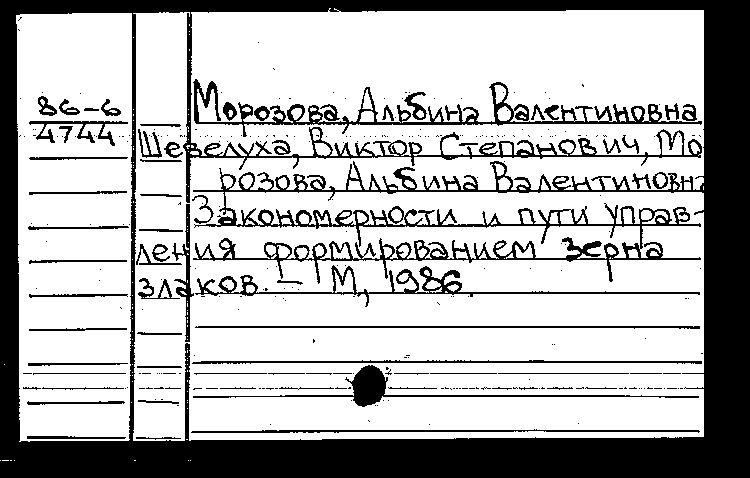 86-6
4744
Морозова, Альбина Валентиновна
Шевелуха, Виктор Степанович, Мо
розова, Альбина Валентиновна
Закономерности и пути управ-
ления формированием зерна
злаков. - М, 1986.